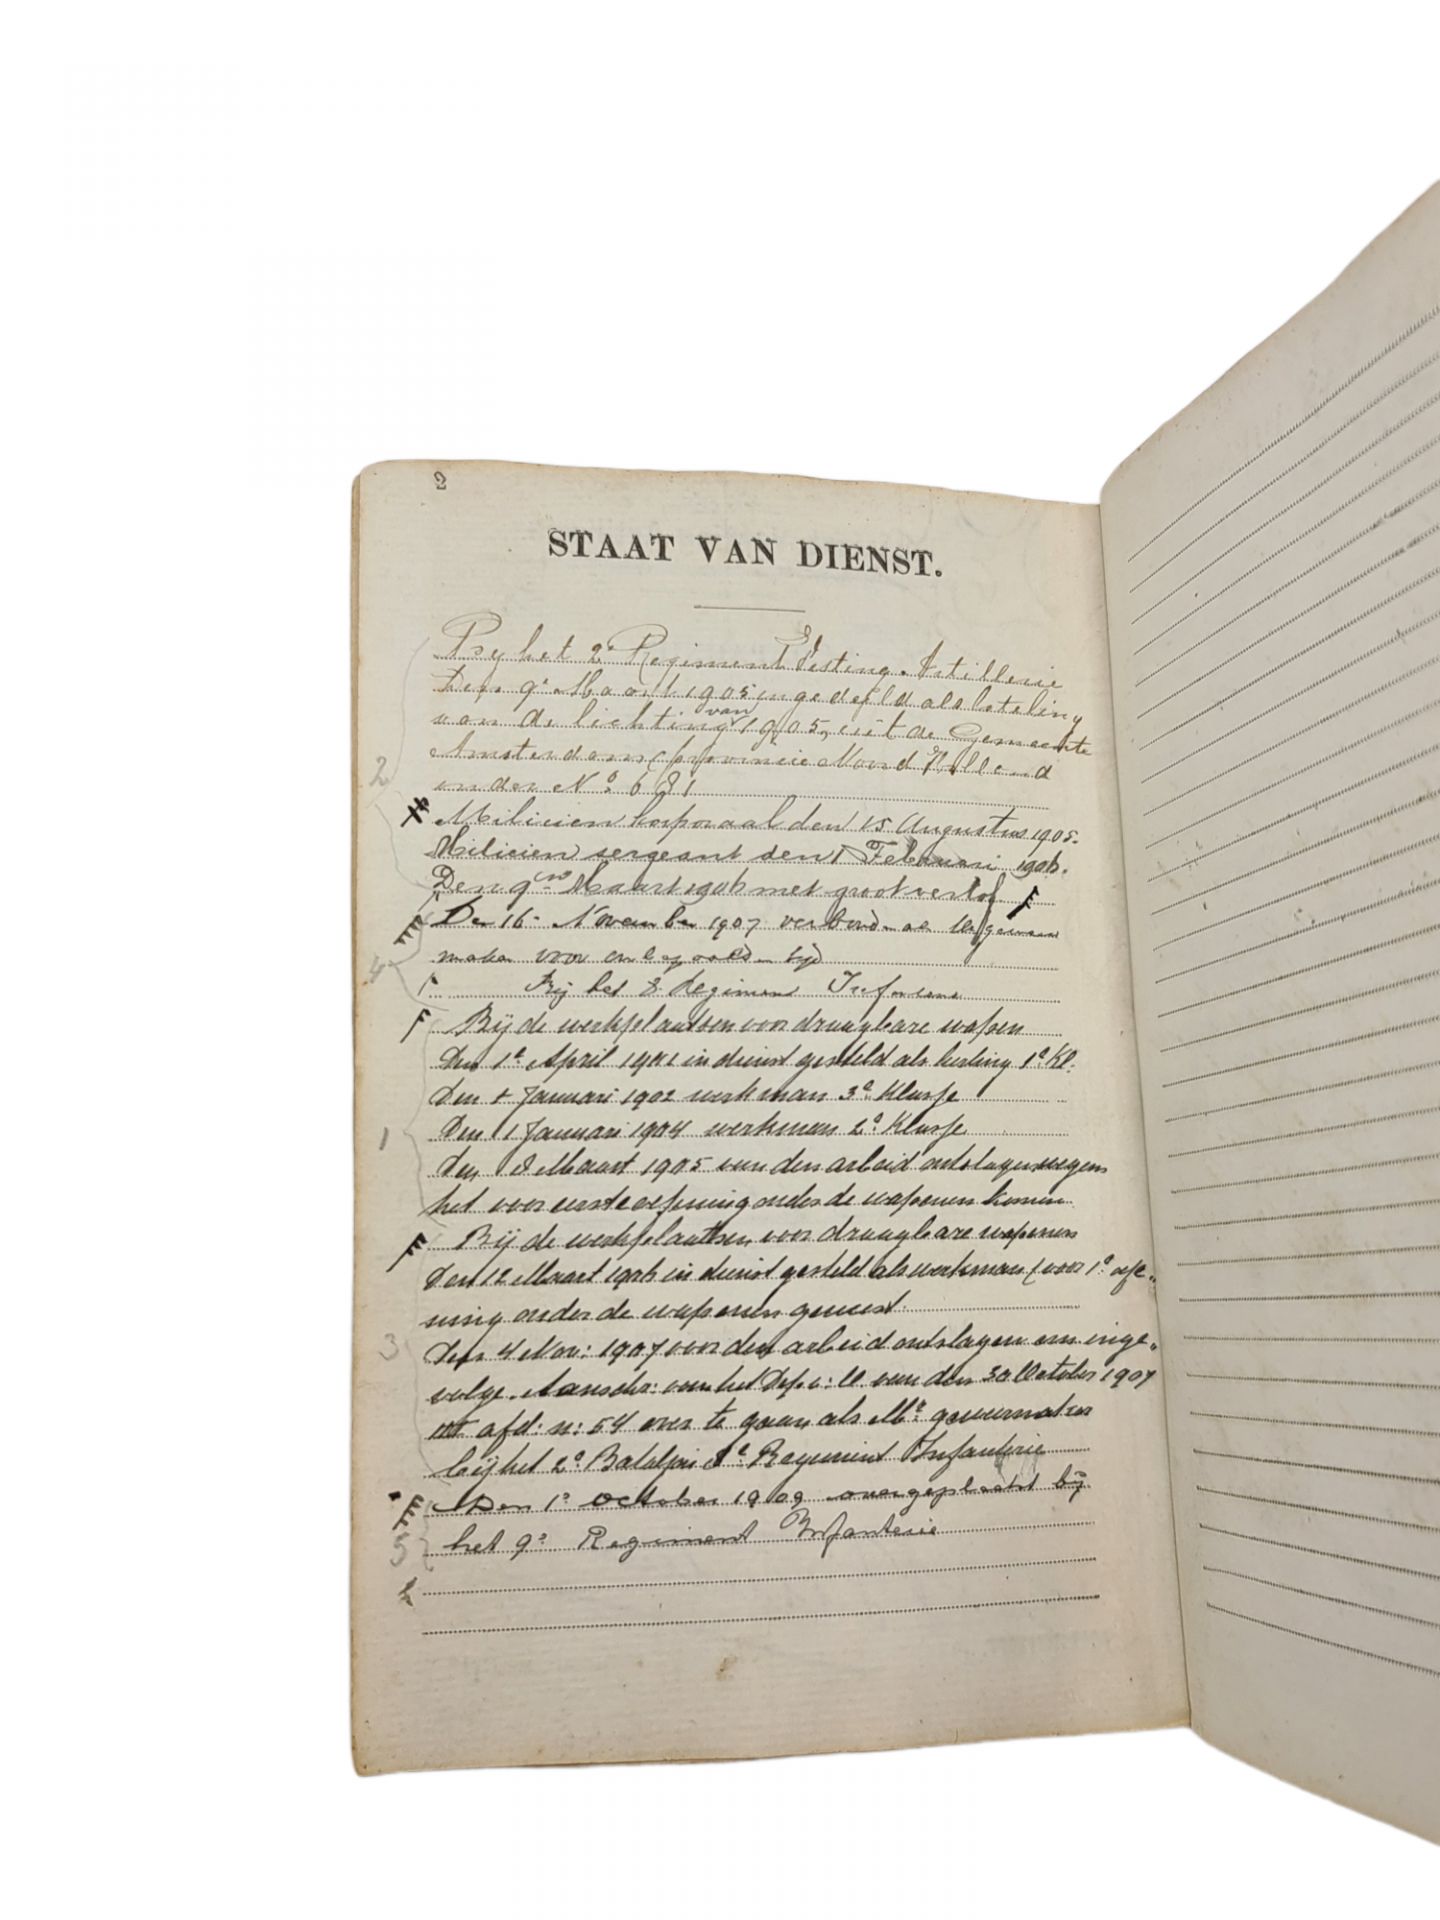 2
STAAT VAN DIENST.
By het 2e Regiment Vesting-Artillerie
Den 9e Maart 1905 ingedeeld als loteling
van de lichting van 1905, uit de Gemeente
Amsterdam provincie Noord Holland
onder No 681
2
Milicien korporaal den 15 Augustus 1905.
Milicien sergeant den 1 Februari 1906.
Den 9en Maart 1906 met groot verlof
De 16e November 1907 verbonden als geweer
maker voor onbepaalden tijd
4
Bij het 8e Regiment Infanterie
Bij de werkplaatsen voor draagbare wapen
Den 1e April 1901 in dienst gesteld als leerling 1e Kl.
Den 1 Januari 1902 werkman 3e Klasse
Den 1 Januari 1904 werkman 2e Klasse
1
Den 8 Maart 1905 van den arbeid ontslagen wegens
het voor eerste oefening onder de wapenen komen
Bij de werkplaatsen voor draagbare wapenen
Den 12 Maart 1906 in dienst gesteld als werkman (voor 1e oefe-
ning onder de wapenen geweest.
3
Den 4 Nov: 1907 van den arbeid ontslagen om inge-
volge Aanschr: van het Dep: v: O. van den 30 October 1907
III afd: n: 54 over te gaan als Mr geweermaker
bij het 2e Bataljon 8e Regiment Infanterie
Den 1e October 1909 overgeplaatst bij
het 9e Regiment Infanterie
5